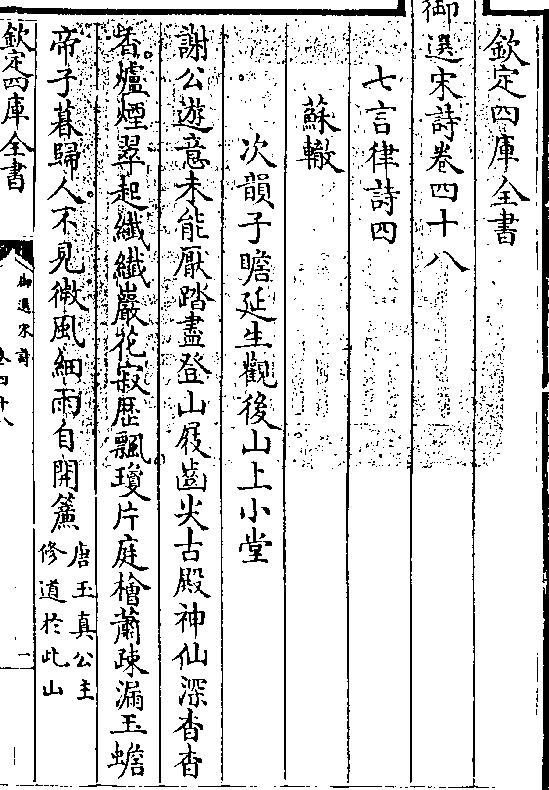 欽定四庫全書
御選宋詩卷四十八
七言律詩四
蘇轍
次韻子瞻延生觀後山上小堂
謝公遊意未能厭踏盡登山屐齒尖古殿神仙深杳杳
香爐煙翠起纖纖巖花寂歷飄瓊片庭檜蕭疎漏玉蟾
帝子暮歸人不見微風細雨自開簾
唐玉真公主
修道於此山
欽定四庫全書
御選宋詩
卷四十八
一